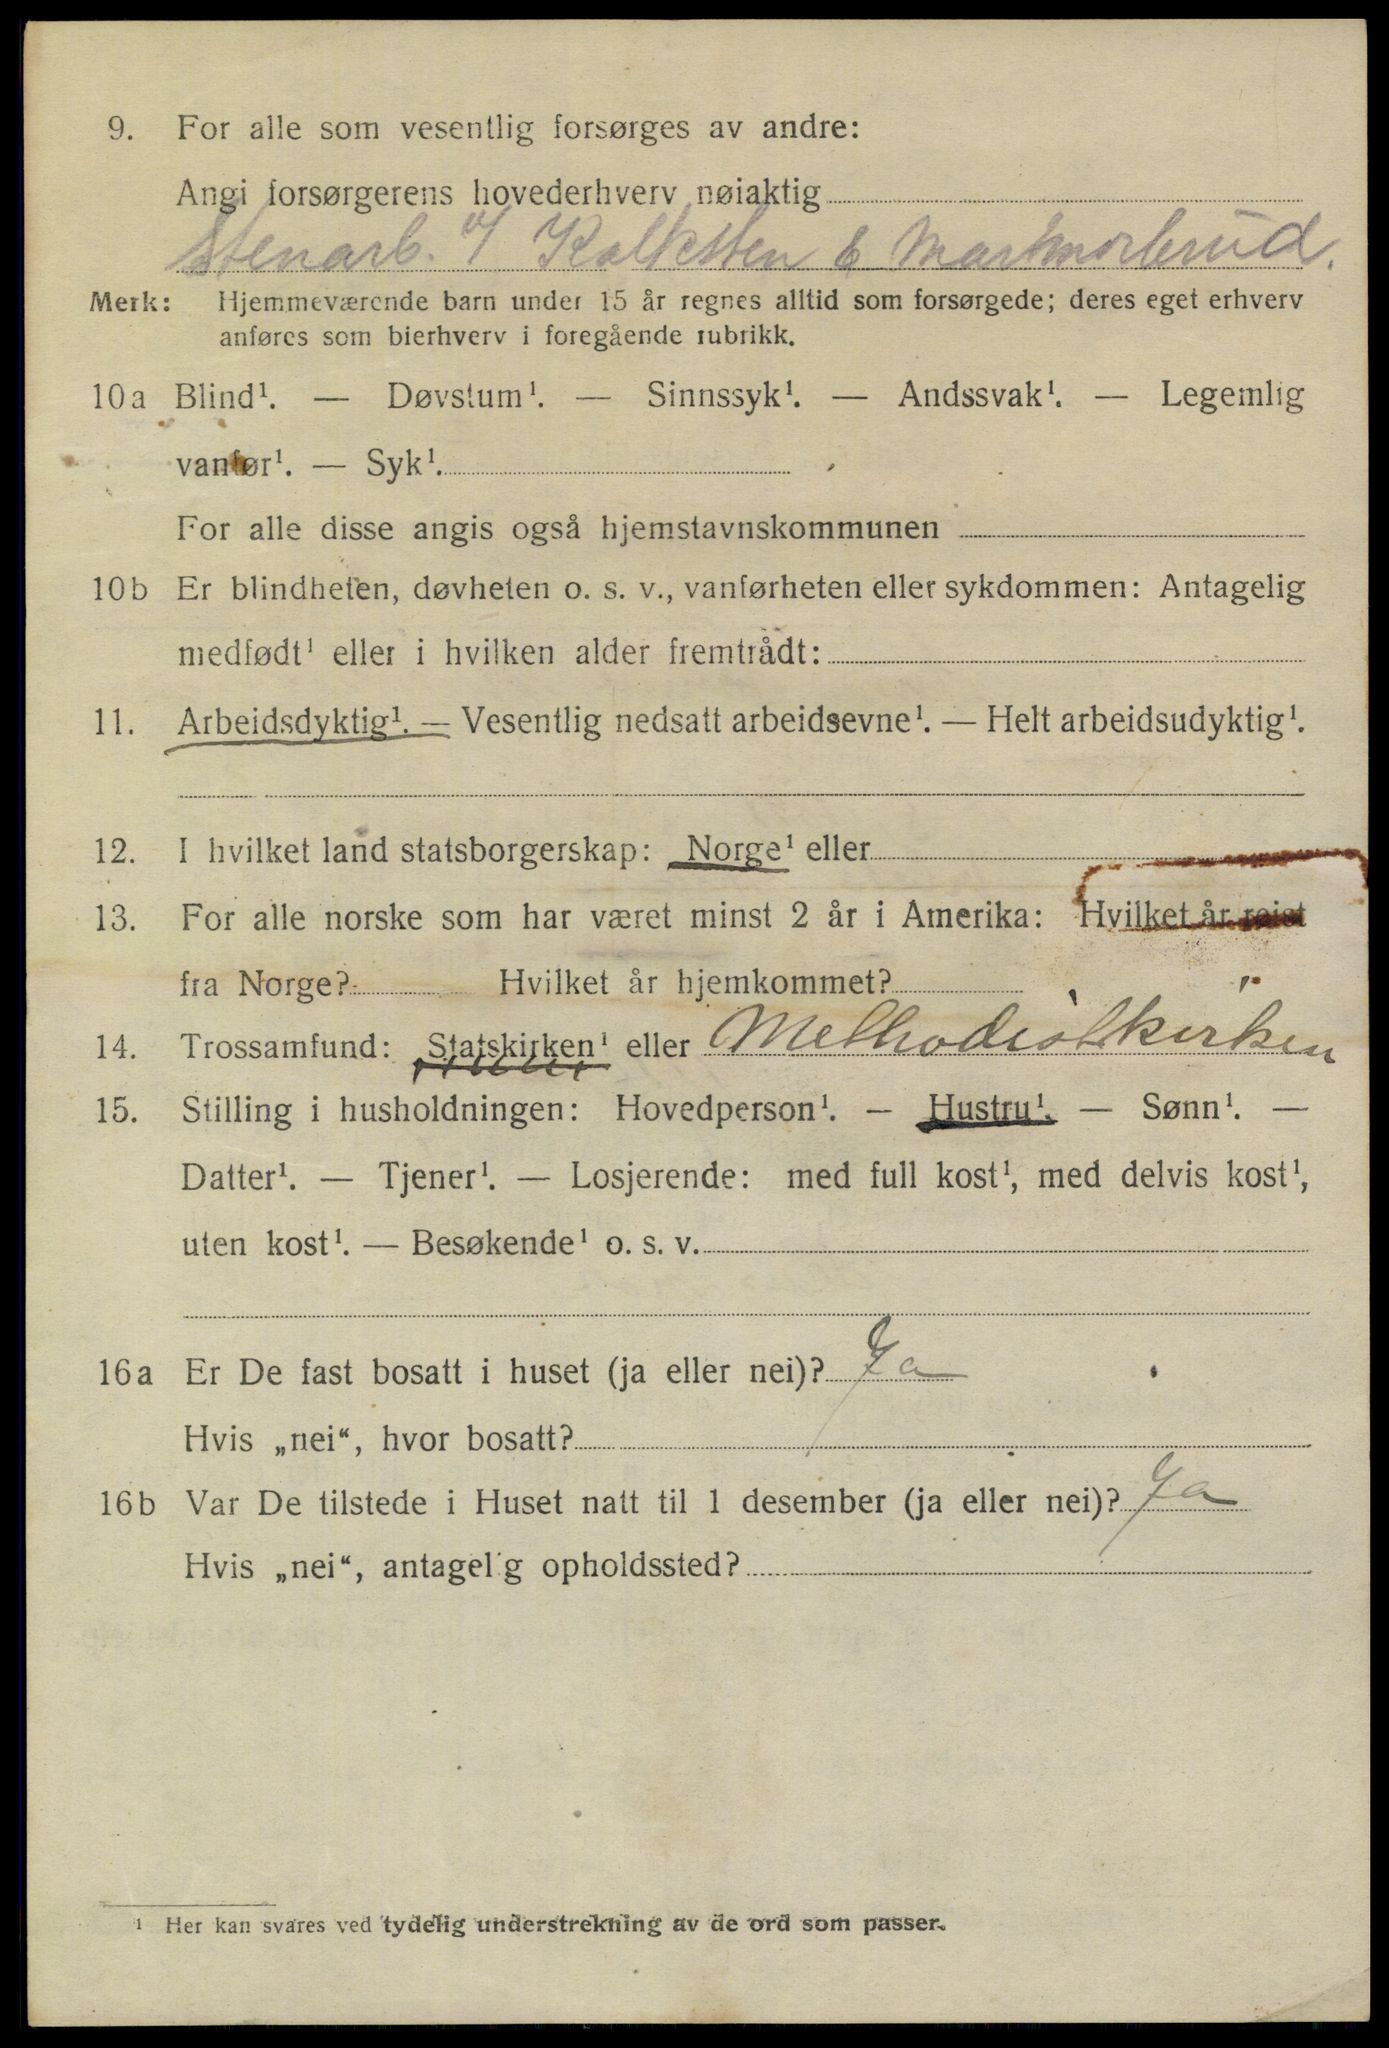 9. For alle som vesentlig forsørges av andre:
Angi forsørgerens hovederhverv nøiaktig
Stenarb. v/ Kalksten & Marmorbrud.
Merk: Hjemmeværende barn under 15 år regnes alltid som forsørgede; deres eget erhverv
anføres som bierhverv i foregående rubrikk.
10a Blind¹. — Døvstum¹. — Sinnssyk¹. — Andssvak¹. — Legemlig
vanfør¹. — Syk¹.
For alle disse angis også hjemstavnskommunen
10b Er blindheten, døvheten o. s. v., vanførheten eller sykdommen: Antagelig
medfødt¹ eller i hvilken alder fremtrådt:
11. Arbeidsdyktig¹. — Vesentlig nedsatt arbeidsevne¹. — Helt arbeidsudyktig¹.
12. I hvilket land statsborgerskap: Norge¹ eller
13. For alle norske som har været minst 2 år i Amerika: Hvilket år reist
fra Norge? Hvilket år hjemkommet?
14. Trossamfund: Statskirken¹ eller Methodistkirken
15. Stilling i husholdningen: Hovedperson¹. — Hustru¹. — Sønn¹. —
Datter¹. — Tjener¹. — Losjerende: med full kost¹, med delvis kost¹,
uten kost¹. — Besøkende¹ o. s. v.
16a Er De fast bosatt i huset (ja eller nei)? Ja
Hvis „nei“, hvor bosatt?
16b Var De tilstede i Huset natt til 1 desember (ja eller nei)? Ja
Hvis „nei“, antagelig opholdssted?
¹ Her kan svares ved tydelig understrekning av de ord som passer.